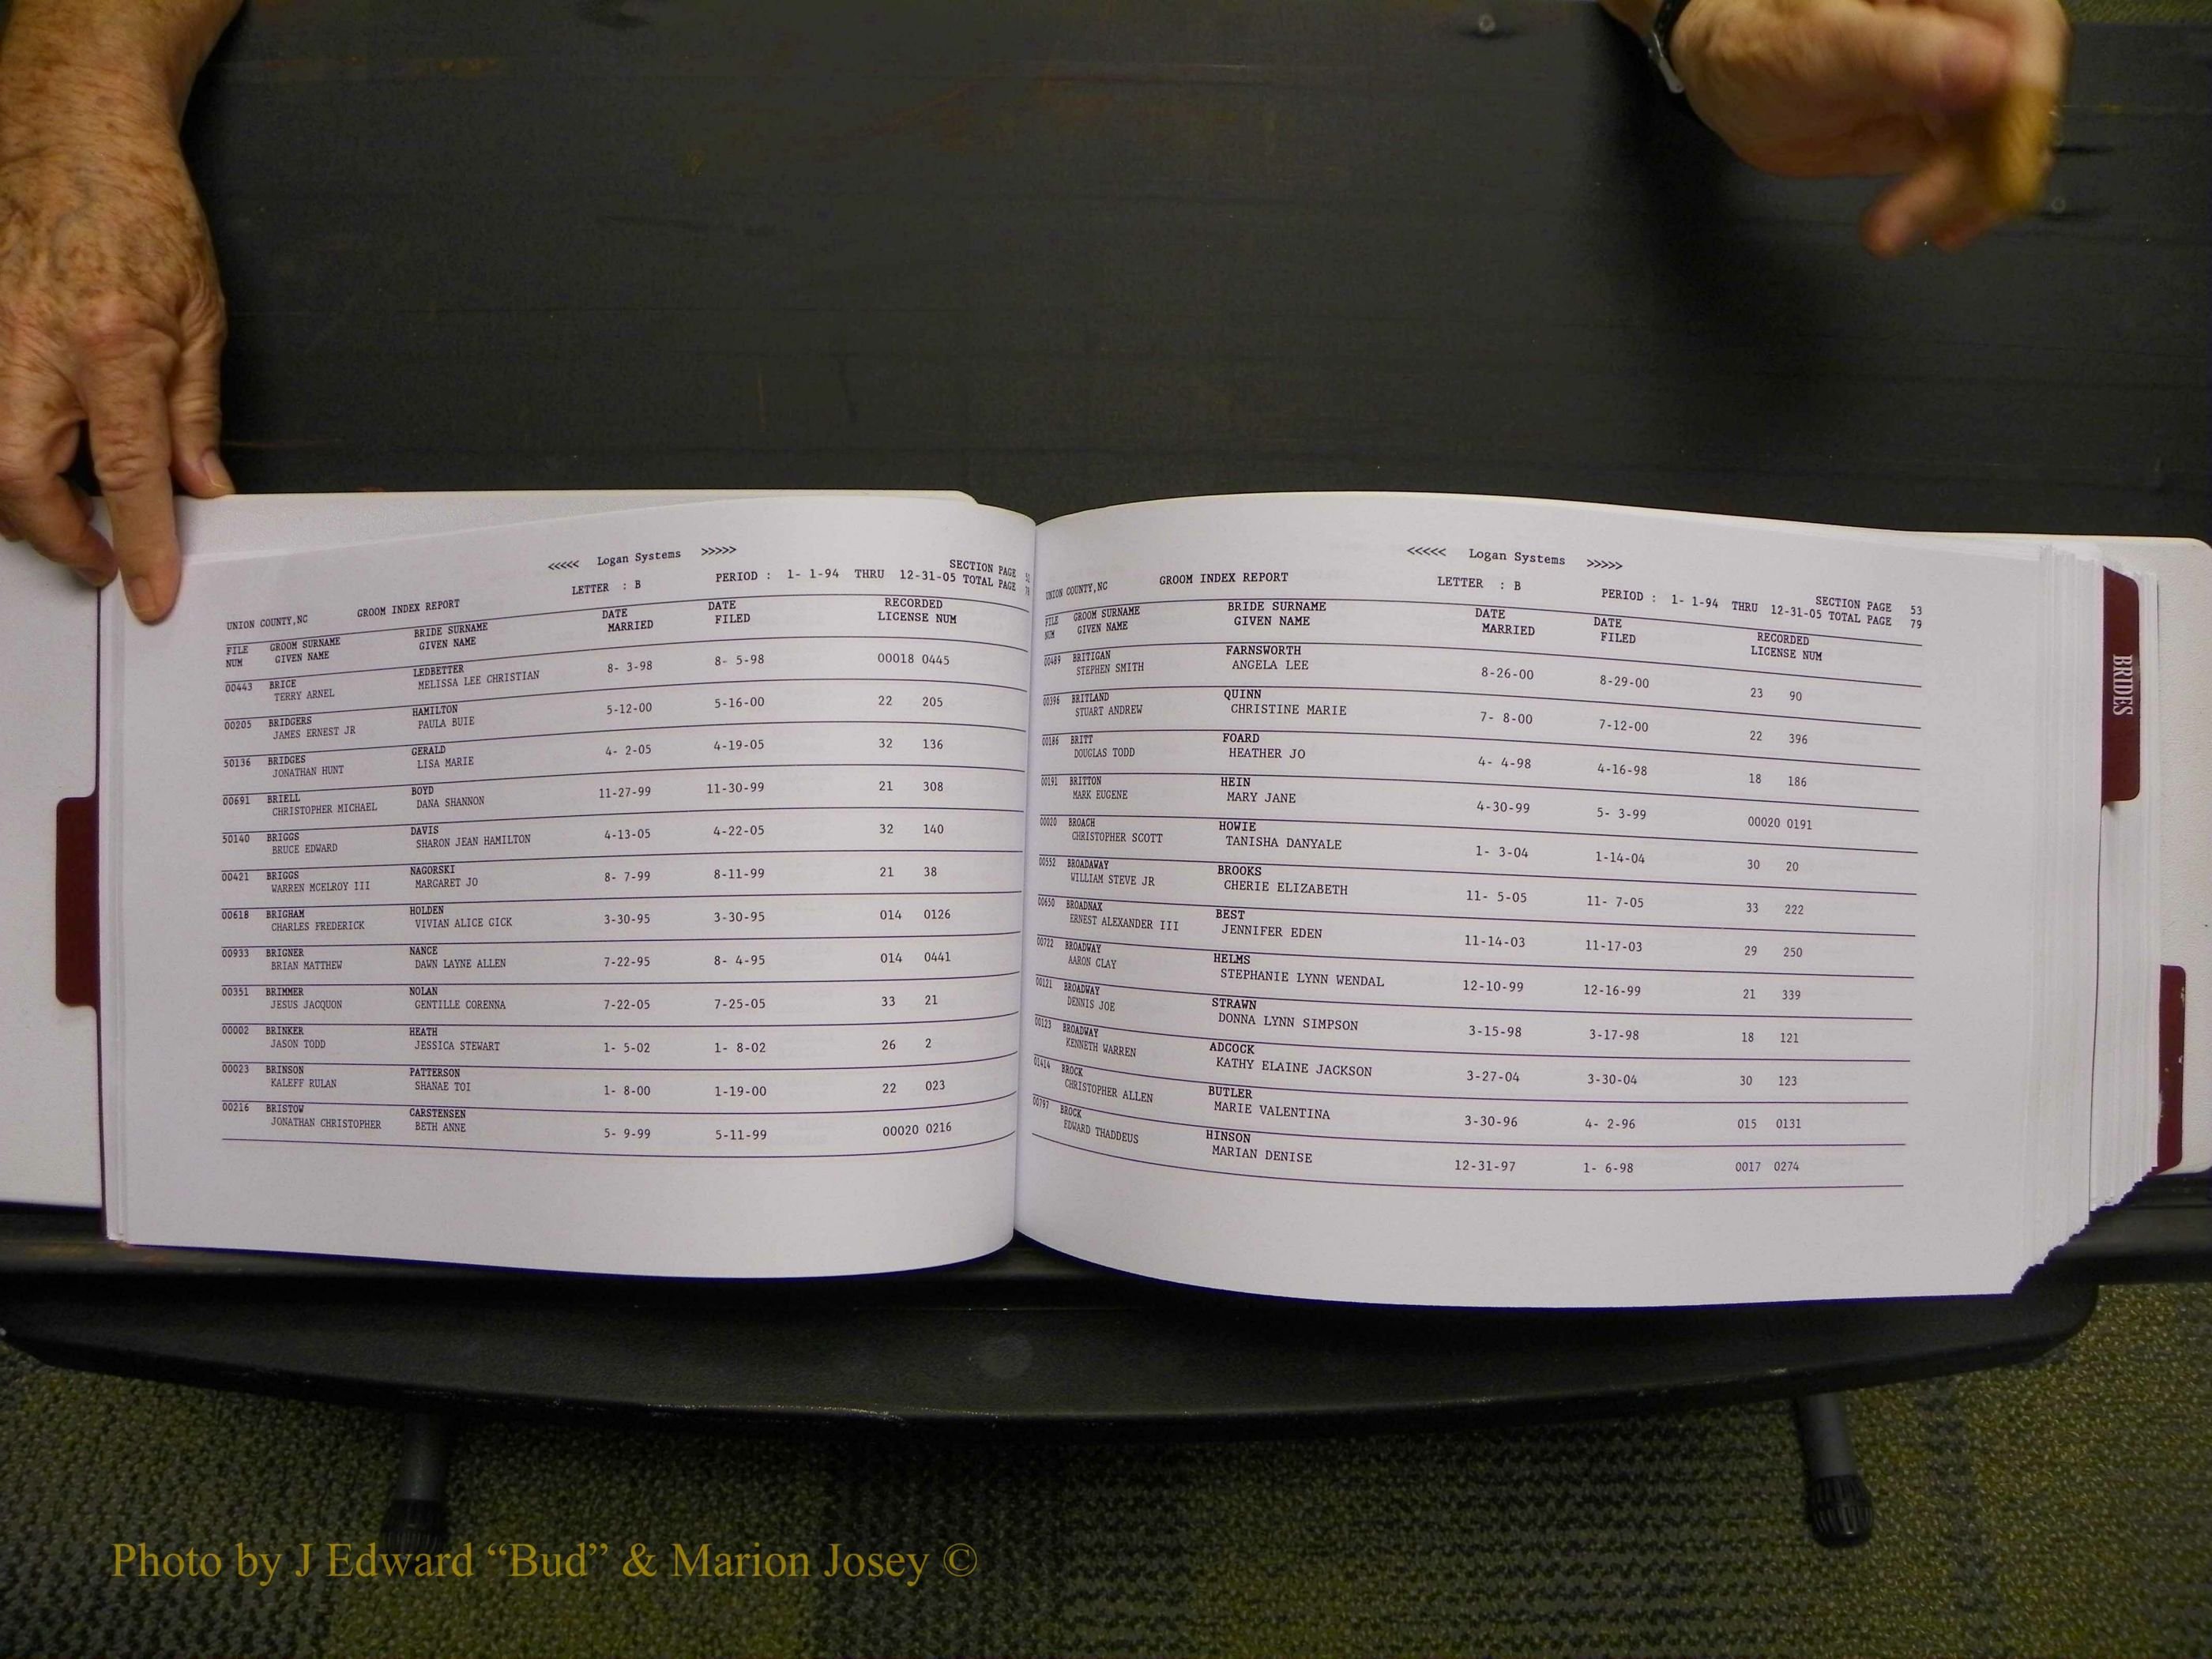 <<<<< Logan Systems >>>>>
UNION COUNTY,NC GROOM INDEX REPORT LETTER : B PERIOD : 1- 1-94 THRU 12-31-05 SECTION PAGE
TOTAL PAGE
FILE GROOM SURNAME BRIDE SURNAME DATE DATE RECORDED
NUM GIVEN NAME GIVEN NAME MARRIED FILED LICENSE NUM
00443 BRICE LEDBETTER 8- 3-98 8- 5-98 00018 0445
TERRY ARNEL MELISSA LEE CHRISTIAN
00205 BRIDGERS HAMILTON 5-12-00 5-16-00 22 205
JAMES ERNEST JR PAULA BUIE
50136 BRIDGES GERALD 4- 2-05 4-19-05 32 136
JONATHAN HUNT LISA MARIE
00691 BRIELL BOYD 11-27-99 11-30-99 21 308
CHRISTOPHER MICHAEL DANA SHANNON
50140 BRIGGS DAVIS 4-13-05 4-22-05 32 140
BRUCE EDWARD SHARON JEAN HAMILTON
00421 BRIGGS NAGORSKI 8- 7-99 8-11-99 21 38
WARREN MCELROY III MARGARET JO
00618 BRIGHAM HOLDEN 3-30-95 3-30-95 014 0126
CHARLES FREDERICK VIVIAN ALICE GICK
00933 BRIGNER NANCE 7-22-95 8- 4-95 014 0441
BRIAN MATTHEW DAWN LAYNE ALLEN
00351 BRIMMER NOLAN 7-22-05 7-25-05 33 21
JESUS JACQUON GENTILLE CORENNA
00002 BRINKER HEATH 1- 5-02 1- 8-02 26 2
JASON TODD JESSICA STEWART
00023 BRINSON PATTERSON 1- 8-00 1-19-00 22 023
KALEFF RULAN SHANAE TOI
00216 BRISTOW CARSTENSEN 5- 9-99 5-11-99 00020 0216
JONATHAN CHRISTOPHER BETH ANNE
<<<<< Logan Systems >>>>>
UNION COUNTY,NC GROOM INDEX REPORT LETTER : B PERIOD : 1- 1-94 THRU 12-31-05 SECTION PAGE 53
TOTAL PAGE 79
FILE GROOM SURNAME BRIDE SURNAME DATE DATE RECORDED
NUM GIVEN NAME GIVEN NAME MARRIED FILED LICENSE NUM
00489 BRITIGAN FARNSWORTH 8-26-00 8-29-00 23 90
STEPHEN SMITH ANGELA LEE
00396 BRITLAND QUINN 7- 8-00 7-12-00 22 396
STUART ANDREW CHRISTINE MARIE
00186 BRITT FOARD 4- 4-98 4-16-98 18 186
DOUGLAS TODD HEATHER JO
00191 BRITTON HEIN 4-30-99 5- 3-99 00020 0191
MARK EUGENE MARY JANE
00020 BROACH HOWIE 1- 3-04 1-14-04 30 20
CHRISTOPHER SCOTT TANISHA DANYALE
00552 BROADAWAY BROOKS 11- 5-05 11- 7-05 33 222
WILLIAM STEVE JR CHERIE ELIZABETH
00650 BROADNAX BEST 11-14-03 11-17-03 29 250
ERNEST ALEXANDER III JENNIFER EDEN
00722 BROADWAY HELMS 12-10-99 12-16-99 21 339
AARON CLAY STEPHANIE LYNN WENDAL
00121 BROADWAY STRAWN 3-15-98 3-17-98 18 121
DENNIS JOE DONNA LYNN SIMPSON
00123 BROADWAY ADCOCK 3-27-04 3-30-04 30 123
KENNETH WARREN KATHY ELAINE JACKSON
01414 BROCK BUTLER 3-30-96 4- 2-96 015 0131
CHRISTOPHER ALLEN MARIE VALENTINA
00797 BROCK HINSON 12-31-97 1- 6-98 0017 0274
EDWARD THADDEUS MARIAN DENISE
BRIDES
Photo by J Edward “Bud” & Marion Josey ©